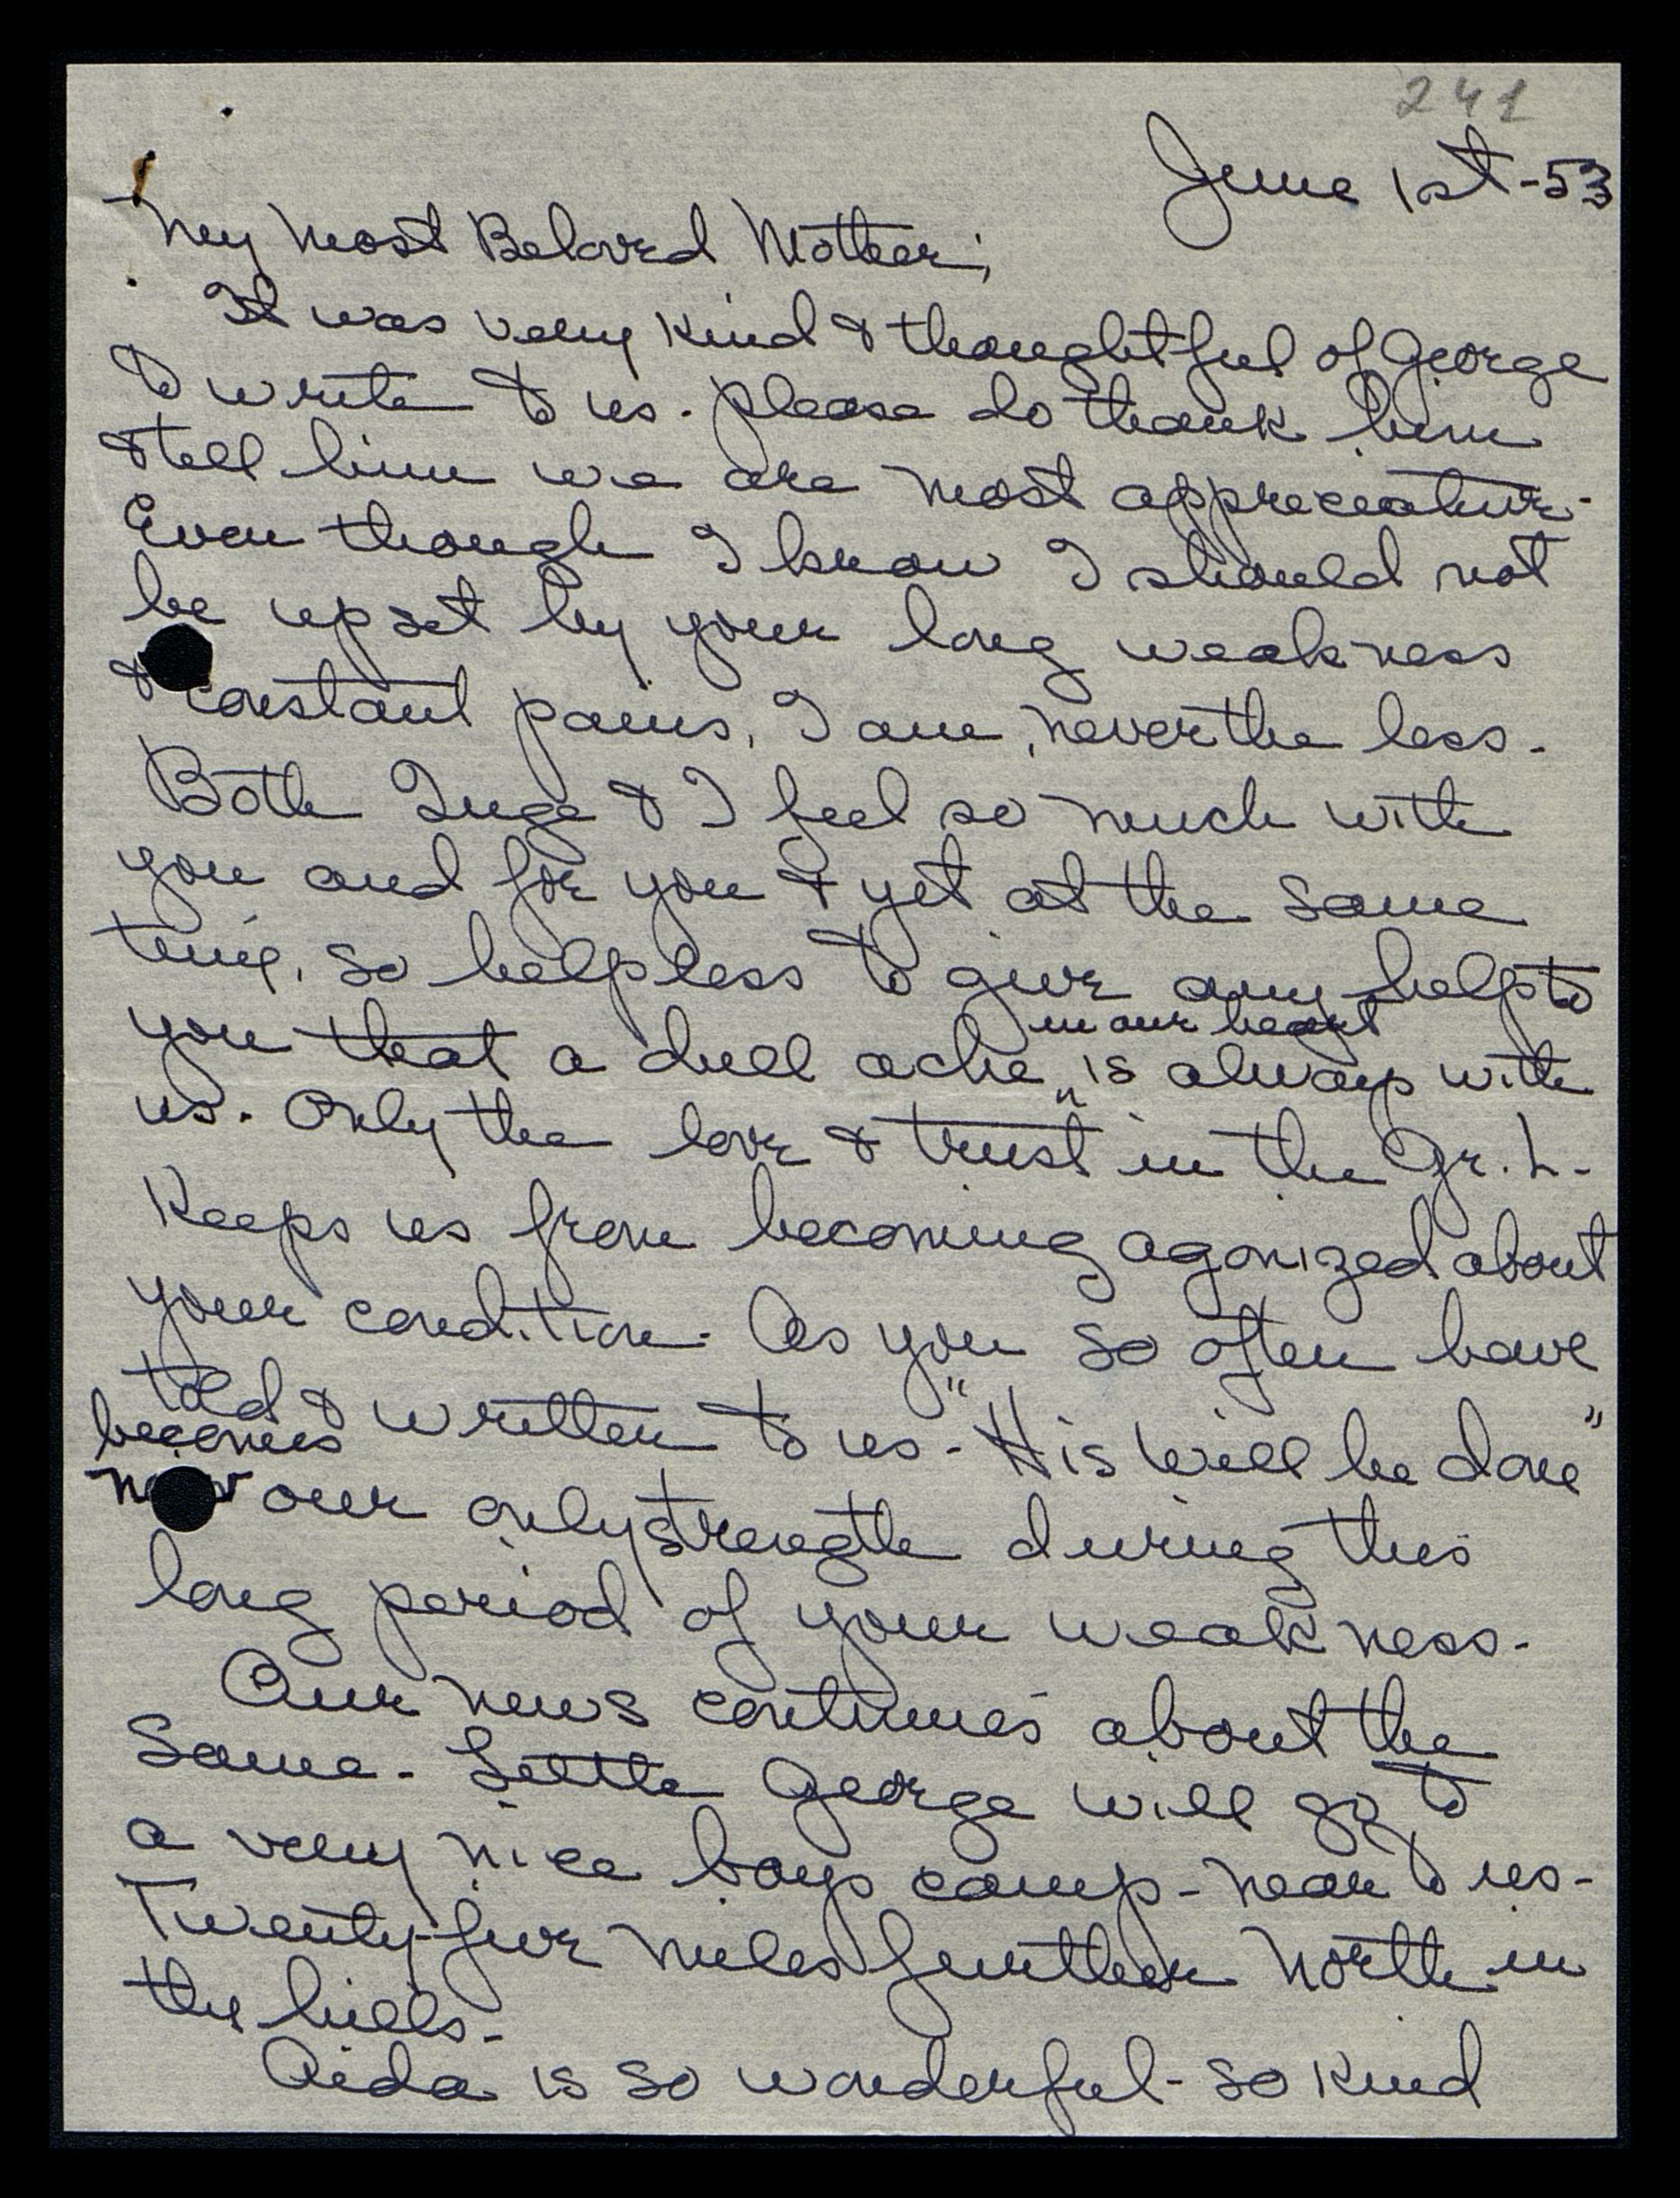 241
June 1st - 53
My Most Beloved Mother;
It was very kind & thoughtful of George
to write to us. Please do thank him
& tell him we are most appreciative.
Even though I know I should not
be upset by your long weakness
& constant pains, I am, never the less.
Both Inge & I feel so much with
you and for you & yet at the same
time, so helpless to give any help to
in our heart
you that a dull ache " is always with
us. Only the love & trust in the Gr. L.
Keeps us from becoming agonized about
your condition. As you so often have
told & written to us - "His will be done"
becomes
now our only strength during this
long period of your weakness.
Our news continues about the
Same. Little George will go to
a very nice boys camp - near to us -
Twenty-five miles further North in
the hills.
Aida is so wonderful - so kind